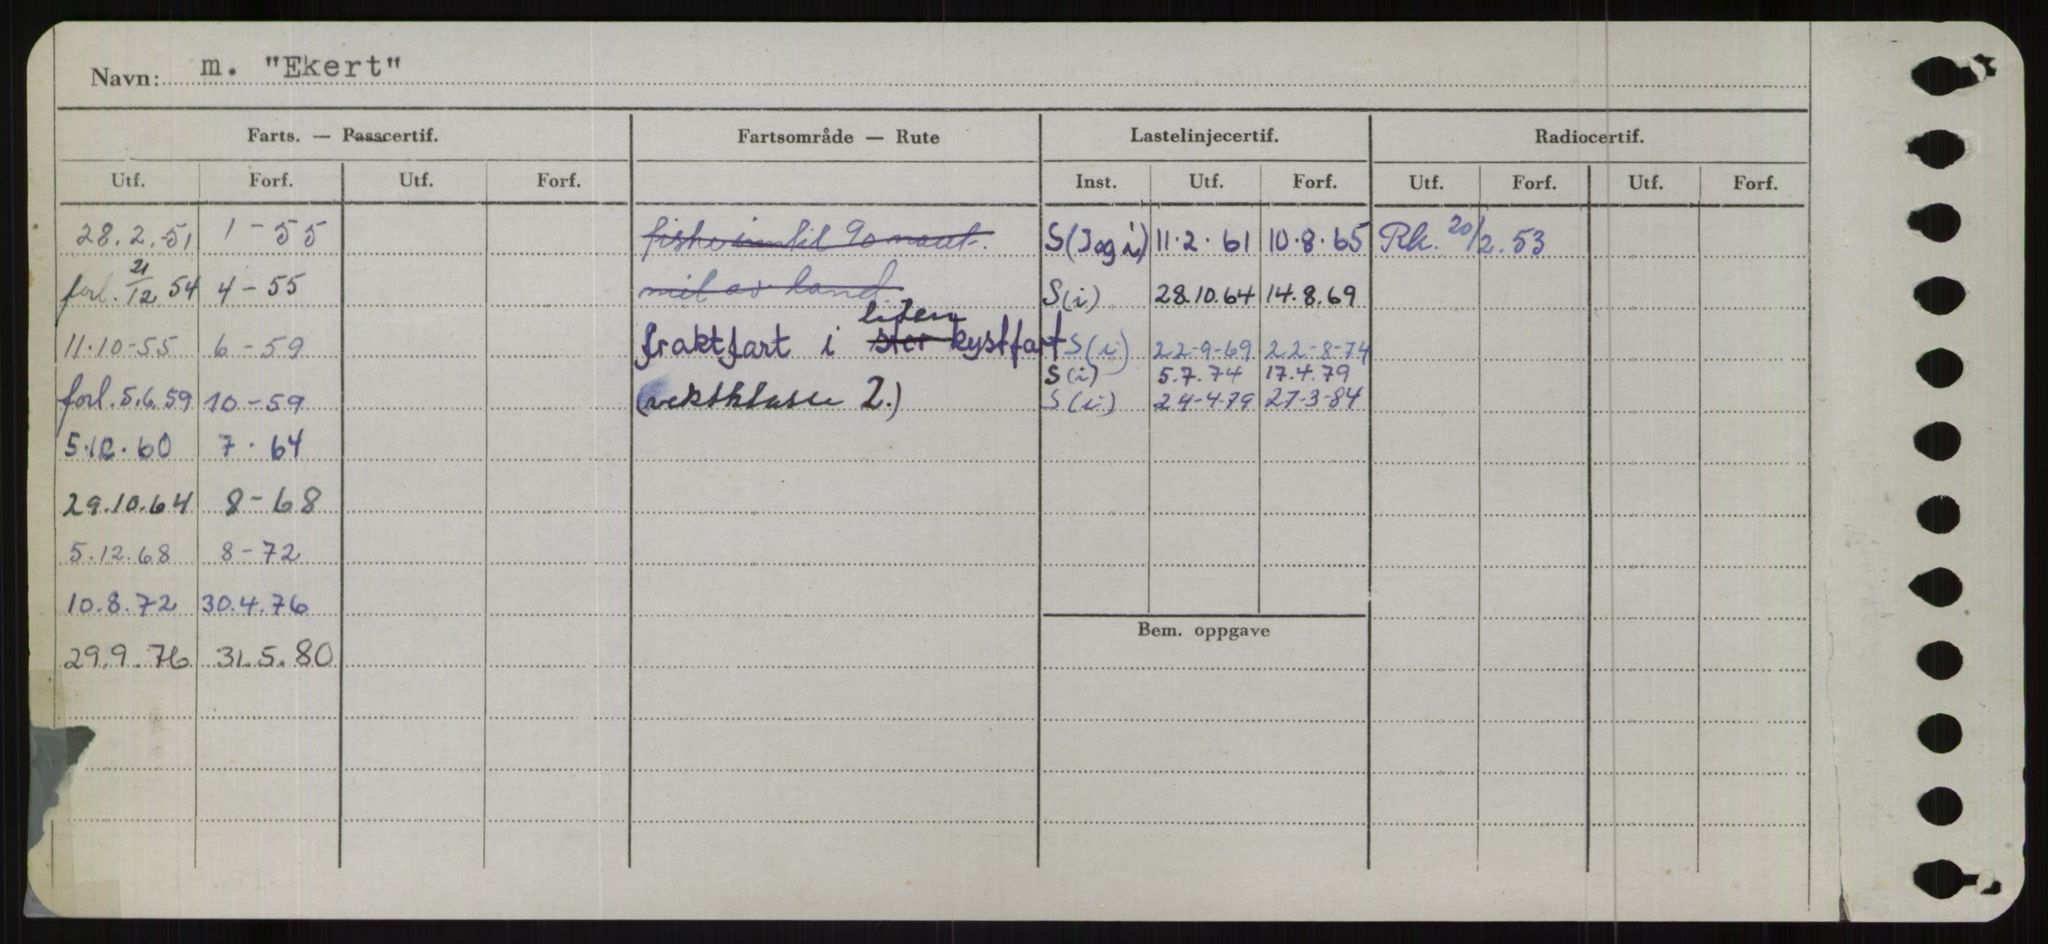 Navn: m. "Ekert"
Farts. — Passcertif. Fartsområde — Rute Lastelinjecertif. Radiocertif.
Utf. Forf. Utf. Forf. Inst. Utf. Forf. Utf. Forf. Utf. Forf.
28.2.51 1-55 fiske inntil 90 naut. S(I og i) 11.2.61 10.8.65 Rk. 20/2.53
forl. 21/12 54 4-55 mil av land S(i) 28.10.64 14.8.69
liten
11.10-55 6-59 fraktfart i stor kystfart S(i) 22-9-69 22-8-74
S(i) 5.7.74 17.4.79
forl. 5.6.59 10-59 (vektklasse 2.) S(i) 24-4-79 27-3-84
5.12.60 7.64
29.10.64 8-68
5.12.68 8-72
10.8.72 30.4.76
Bem. oppgave
29.9.76 31.5.80